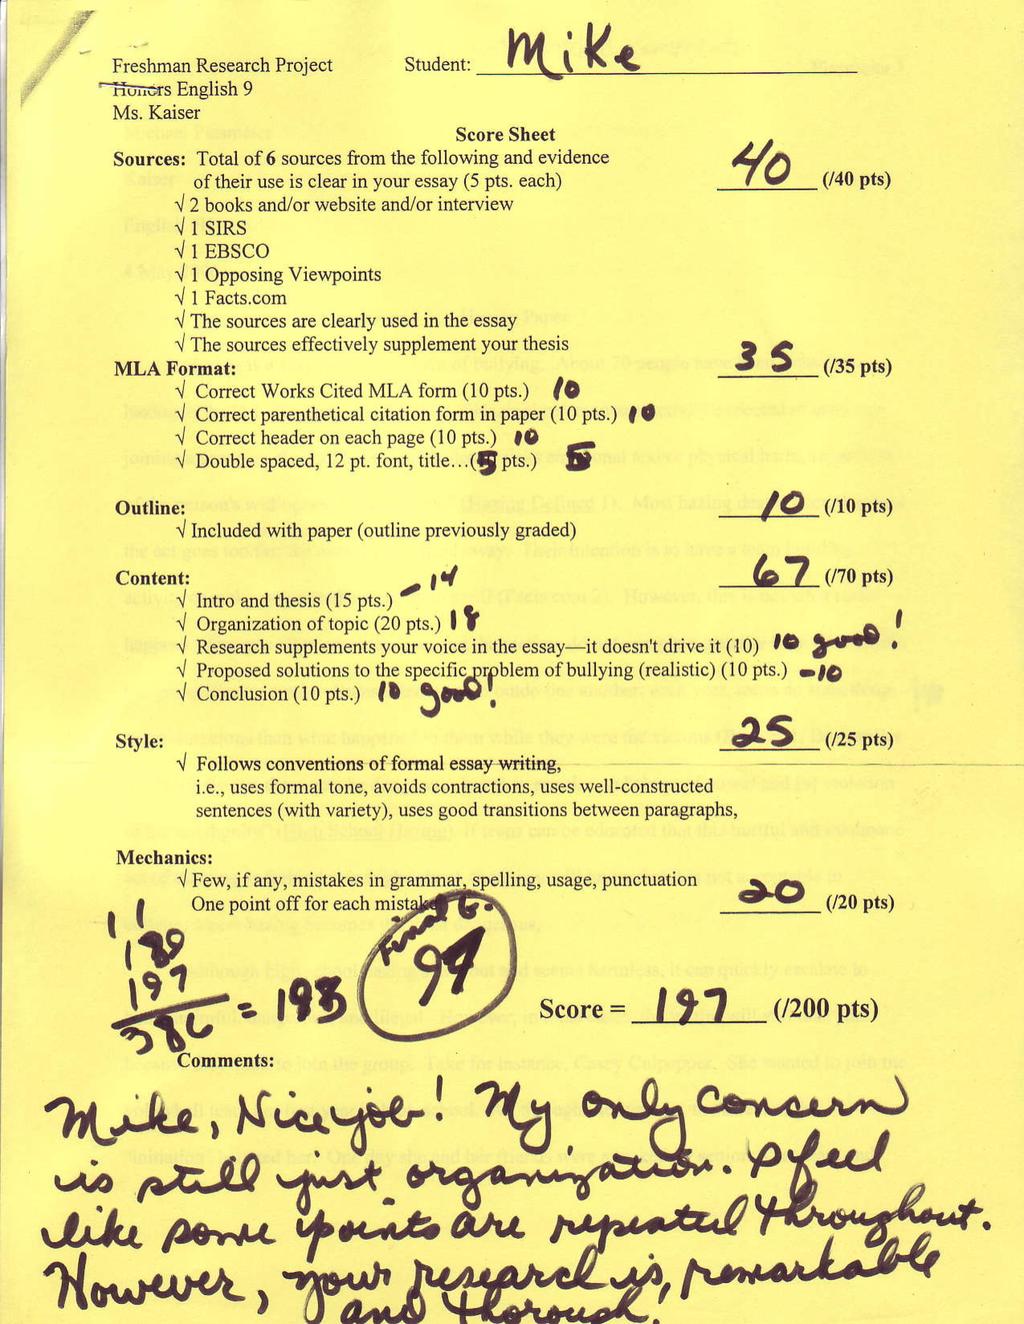 Freshman Research Project Student: Mike
Honors English 9
Ms. Kaiser
Score Sheet
Sources: Total of 6 sources from the following and evidence 40 (/40 pts)
of their use is clear in your essay (5 pts. each)
√ 2 books and/or website and/or interview
√ 1 SIRS
√ 1 EBSCO
√ 1 Opposing Viewpoints
√ 1 Facts.com
√ The sources are clearly used in the essay
√ The sources effectively supplement your thesis
MLA Format: 35 (/35 pts)
√ Correct Works Cited MLA form (10 pts.) 10
√ Correct parenthetical citation form in paper (10 pts.) 10
√ Correct header on each page (10 pts.) 10
√ Double spaced, 12 pt. font, title…(5 pts.) 5
Outline: 10 (/10 pts)
√ Included with paper (outline previously graded)
Content: 67 (/70 pts)
√ Intro and thesis (15 pts.) - 14
√ Organization of topic (20 pts.) 18
√ Research supplements your voice in the essay—it doesn't drive it (10) 10 good!
√ Proposed solutions to the specific problem of bullying (realistic) (10 pts.) -10
√ Conclusion (10 pts.) 10 good!
Style: 25 (/25 pts)
√ Follows conventions of formal essay writing,
i.e., uses formal tone, avoids contractions, uses well-constructed
sentences (with variety), uses good transitions between paragraphs,
Mechanics:
√ Few, if any, mistakes in grammar, spelling, usage, punctuation 20 (/20 pts)
One point off for each mistake
11
189
197
386 = 193
Final G.
97
Score = 197 (/200 pts)
Comments:
Mike, Nice job! My only concern
is still just organization. I feel
like some points are repeated throughout.
However, your research is remarkable
and thorough!